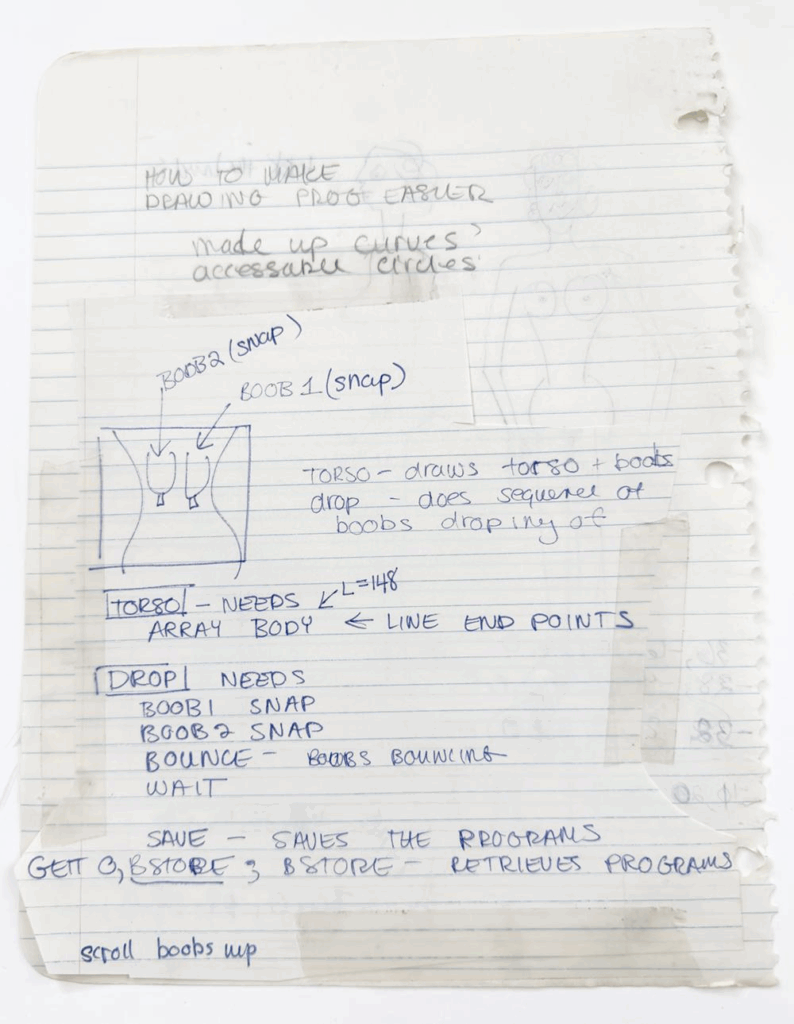 HOW TO MAKE
DRAWING PROG EASIER
made up curves
accessable circles
BOOB2 (snap)
BOOB 1 (snap)
TORSO - draws torso + boobs
drop - does sequence of
boobs droping of
TORSO - NEEDS ↙ L=148
ARRAY BODY ← LINE END POINTS
DROP NEEDS
BOOB1 SNAP
BOOB2 SNAP
BOUNCE - BOOBS BOUNCING
WAIT
SAVE - SAVES THE PROGRAMS
GETT 0, BSTORE ; BSTORE - RETRIEVES PROGRAMS
scroll boobs up